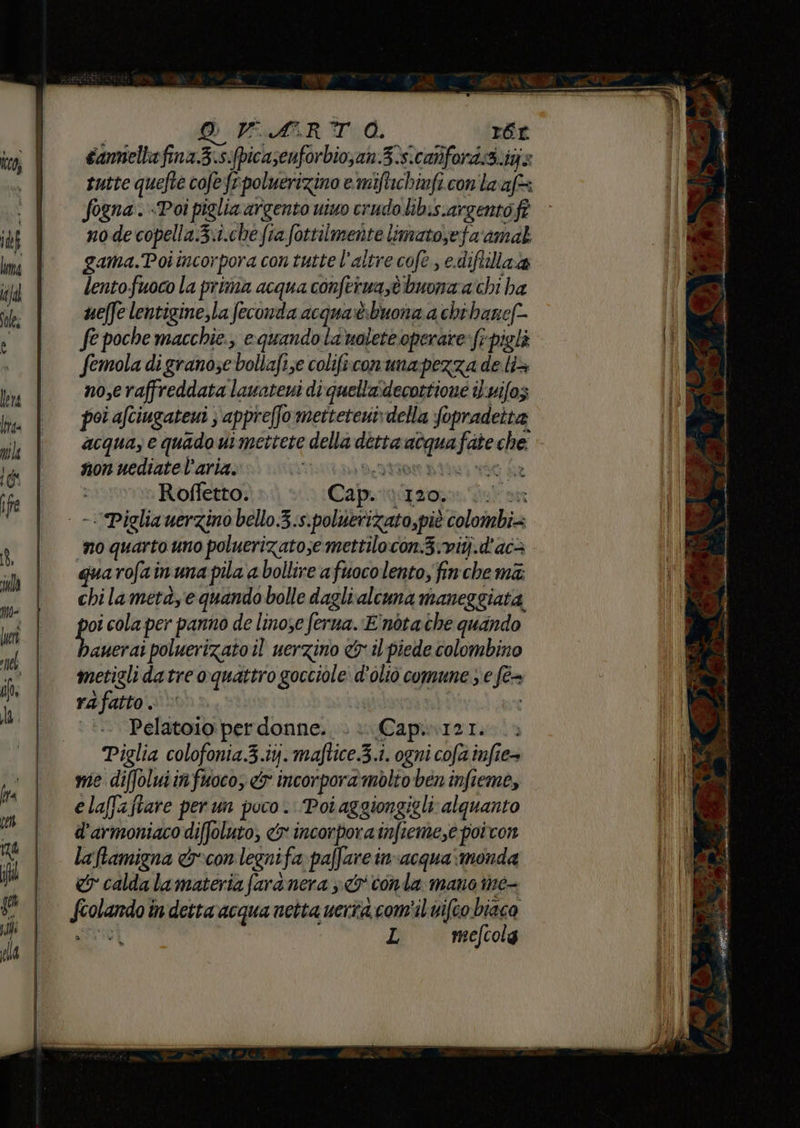 Q V A R T O. 161
cannella fina.ʒ.s.ſpica,euforbio,an.ʒ.s.canfora.ʒ.iij.
tutte queſte coſe ſi poluerizino e miſtichinſi con la aſ-
ſogna. Poi piglia argento uiuo crudo lib.s.argento fi
no de copella.ʒ.i.che ſia ſottilmente limato,e fa amal
gama.Poi incorpora con tutte l'altre coſe, e diſtilla a
lento fuoco la prima acqua conſerua,è buona a chi ha
ueſſe lentigine,la ſeconda acqua è buona a chi haueſ-
ſe poche macchie, e quando la uolete operare ſi pigli
ſemola di grano,e bollaſi,e coliſi con una pezza de li-
no,e raffreddata lauateui di quella decottione il uiſo;
poi aſciugateui, appreſſo metteteui della ſopradetta
acqua, e quādo ui mettete della detta acqua fate che
non uediate l'aria.
Roſſetto. Cap. 120.
Piglia uerzino bello.ʒ.s.poluerizato,piè colombi-
no quarto uno poluerizato,e mettilo con.ʒ.viij.d'ac-
qua roſa in una pila a bollire a fuoco lento, fin che mā
chi la metà, e quando bolle dagli alcuna maneggiata
poi cola per panno de lino,e ſerua. E nota che quando
hauerai poluerizato il uerzino & il piede colombino
metigli da tre o quattro gocciole d'olio comune, e ſe-
rà fatto.
Pelatoio per donne. Cap. 121.
Piglia colofonia.ʒ.iij. maſtice.ʒ.i. ogni coſa inſie-
me diſſolui in fuoco, & incorpora molto ben inſieme,
e laſſa ſtare per un poco. Poi aggiongigli alquanto
d'armoniaco diſſoluto, & incorpora inſieme,e poi con
la ſtamigna & con legni fa paſſare in acqua monda
& calda la materia ſarà nera, & con la mano me-
ſcolando in detta acqua netta uerrà com'il uiſco biāco
L meſcola